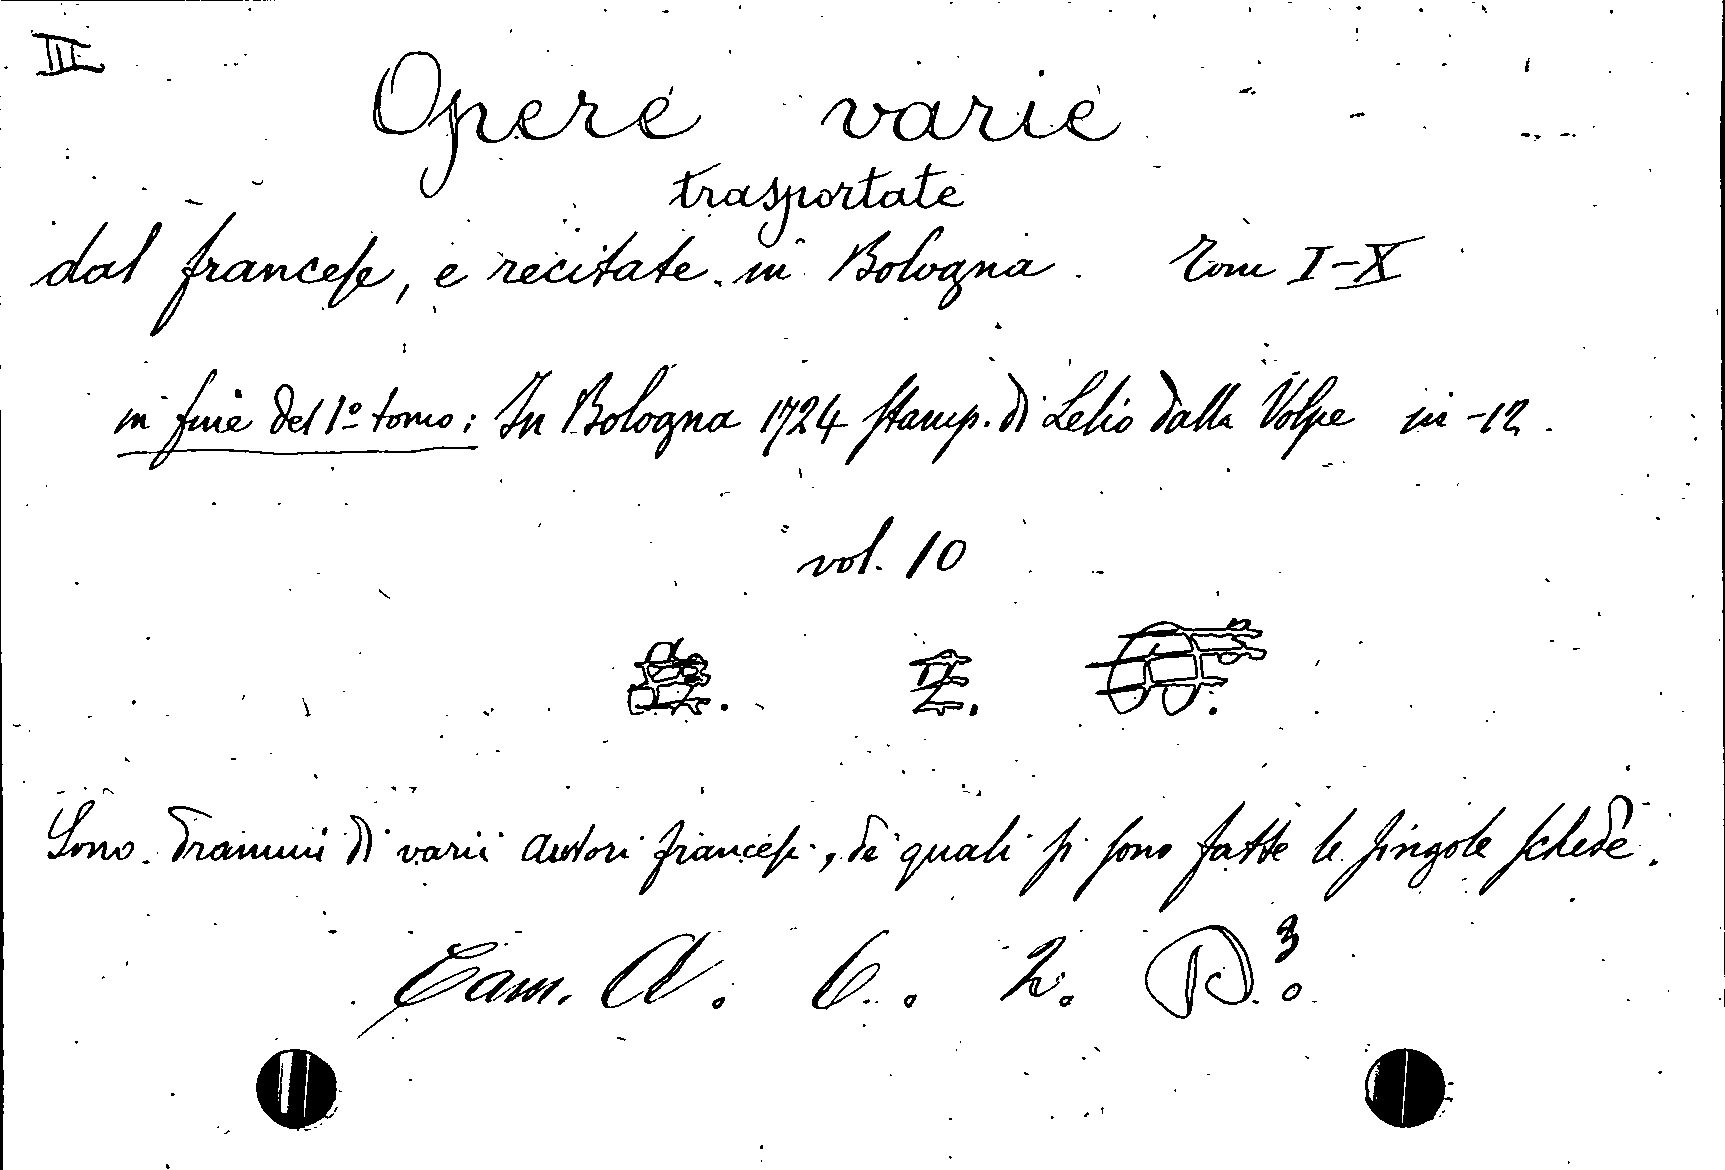 III
Opere varie
trasportate
dal francese, e recitate in Bologna. Tom I-X
in fine del 1º tomo: In Bologna 1724 stamp. di Lelio dalla Volpe in-12.
vol. 10
Sono drammi di varii autori francesi, de quali si sono fatte le singole schede.
Cam. A. 6. 2. D.³